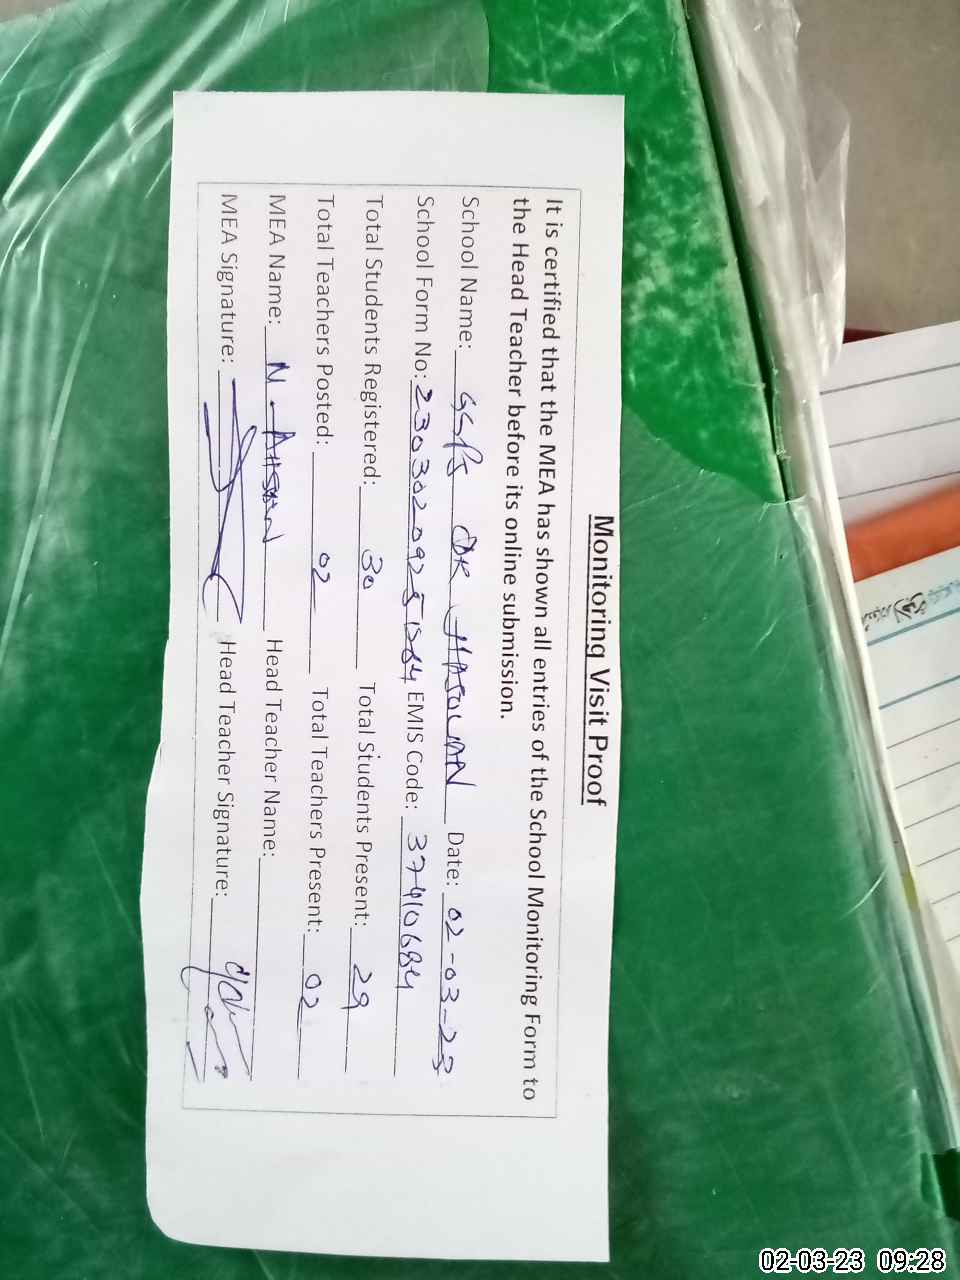 Monitoring Visit Proof
It is certified that the MEA has shown all entries of the School Monitoring Form to
the Head Teacher before its online submission.
School Name: GGPS DK Date: 02-03-23
School Form No: EMIS Code: 37410684
Total Students Registered: 30 Total Students Present: 29
Total Teachers Posted: 02 Total Teachers Present: 02
MEA Name: N. AHSAN Head Teacher Name:
MEA Signature: Head Teacher Signature:
02-03-23 09:28